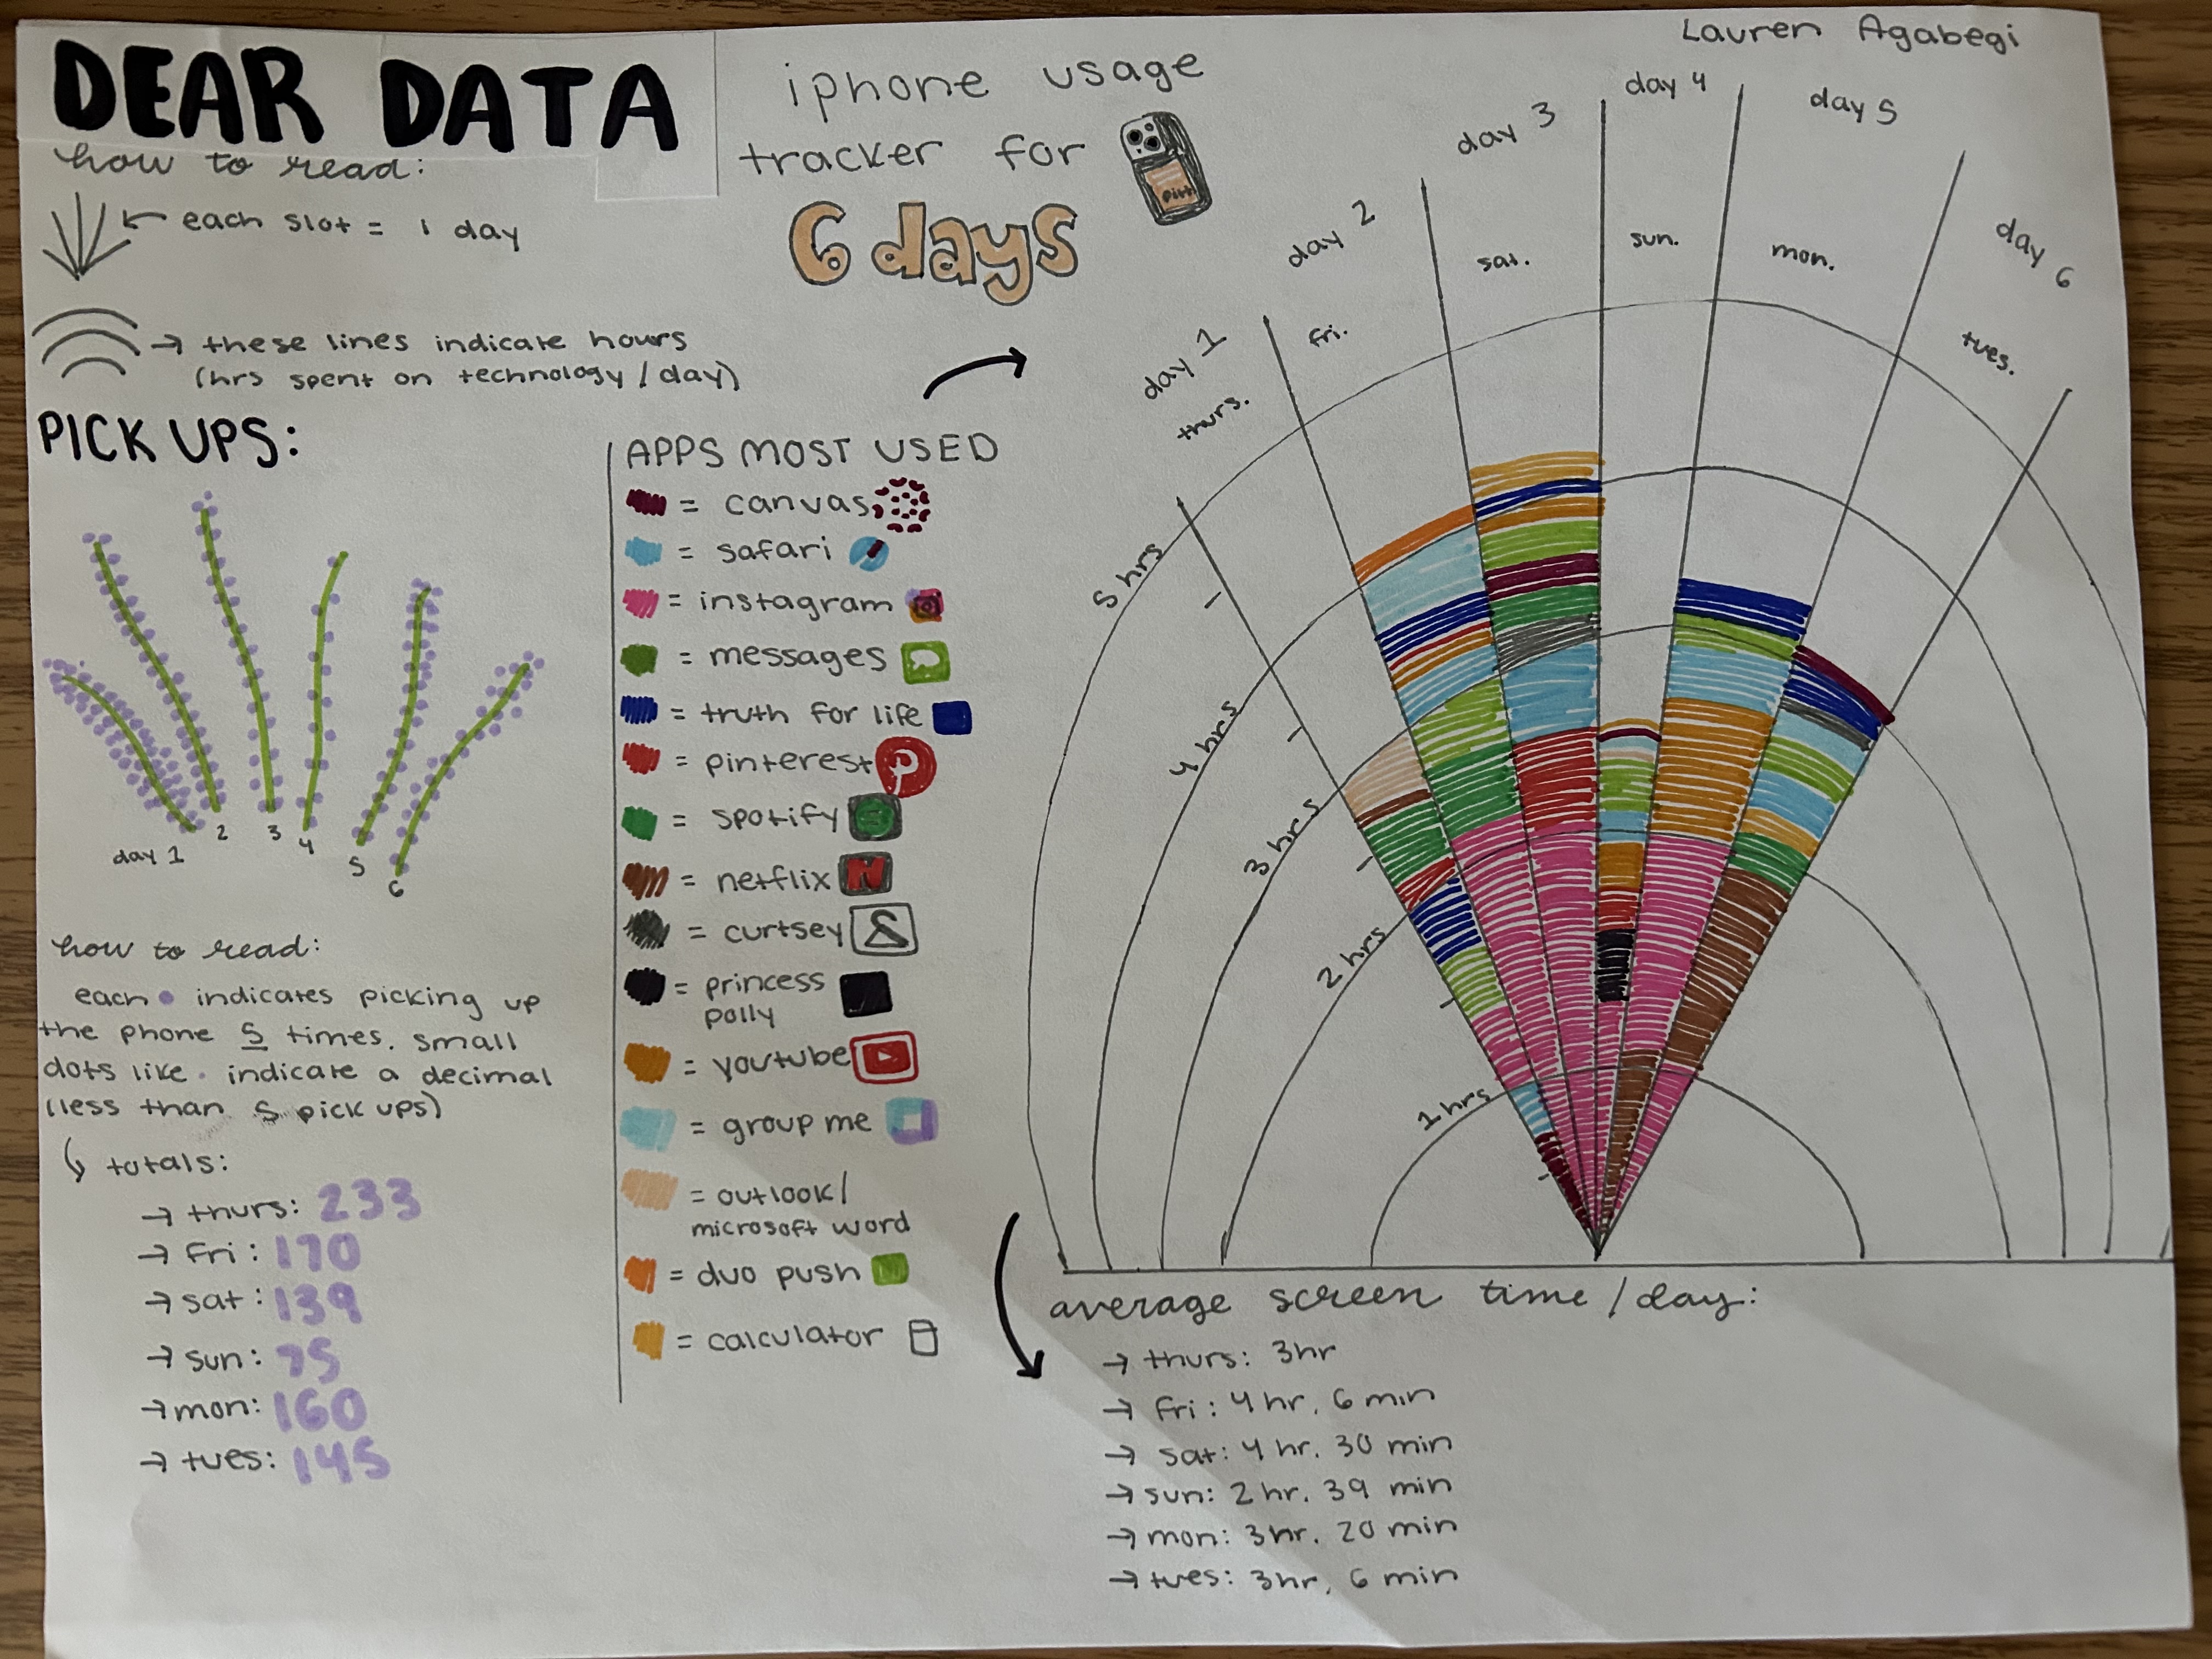 Lauren Agabegi
DEAR DATA
how to read:
each slot = 1 day
these lines indicate hours
(hrs spent on technology / day)
iphone usage
tracker for
6 days
PICK UPS:
day 1
2
3
4
5
6
how to read:
each indicates picking up
the phone 5 times. small
dots like · indicate a decimal
(less than 5 pick ups)
totals:
→ thurs: 233
→ fri: 170
→ sat: 139
→ sun: 75
→ mon: 160
→ tues: 145
APPS MOST USED
= canvas
= safari
= instagram
= messages
= truth for life
= pinterest
= spotify
N
= netflix
= curtsey
= princess
polly
= youtube
= group me
= outlook/
microsoft word
= duo push
= calculator
day 1
thurs.
day 2
fri.
day 3
sat.
day 4
sun.
day 5
mon.
day 6
tues.
5 hrs
4 hrs
3 hrs
2 hrs
1 hrs
average screen time / day:
→ thurs: 3hr
→ fri: 4 hr, 6 min
→ sat: 4 hr. 30 min
→ sun: 2 hr. 39 min
→ mon: 3hr. 20 min
→ tues: 3hr, 6 min